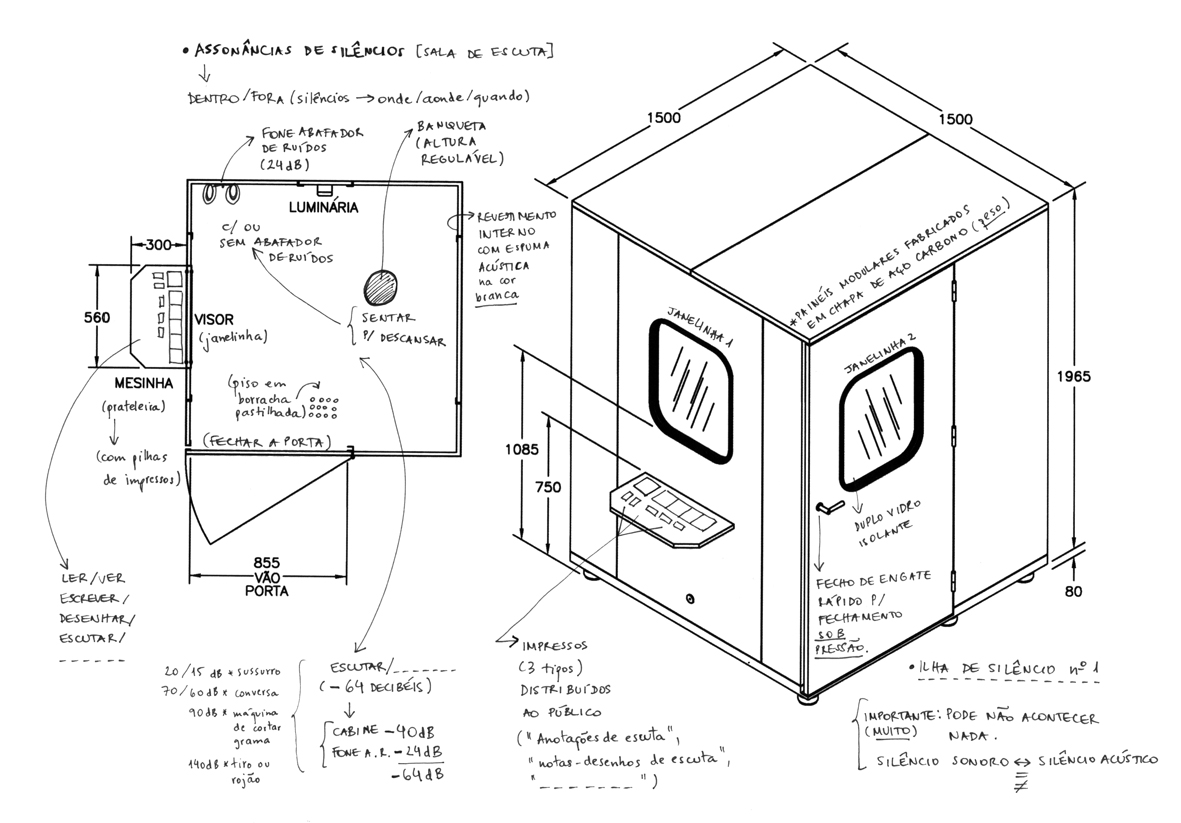 • ASSONÂNCIAS DE SILÊNCIOS [SALA DE ESCUTA]
DENTRO/FORA (silêncios → onde/aonde/quando)
FONE ABAFADOR
DE RUÍDOS
(24dB)
BANQUETA
(ALTURA
REGULÁVEL)
LUMINÁRIA
C/ OU
SEM ABAFADOR
DE RUÍDOS
REVESTIMENTO
INTERNO
COM ESPUMA
ACÚSTICA
na cor
branca
300
560
VISOR
(janelinha)
SENTAR
P/ DESCANSAR
MESINHA
(prateleira)
(com pilhas
de impressos)
(piso em
borracha
pastilhada)
(FECHAR A PORTA)
855
VÃO
PORTA
LER/VER
ESCREVER/
DESENHAR/
ESCUTAR/
_ _ _ _ _ _
20/15 dB * sussurro
70/60dB * conversa
90dB * máquina
de cortar
grama
140dB * tiro ou
rojão
ESCUTAR/_ _ _ _ _ _
(-64 DECIBÉIS)
CABINE -40dB
FONE A.R. -24dB
-64dB
1500
1500
1965
80
1085
750
*PAINÉIS MODULARES FABRICADOS
EM CHAPA DE AÇO CARBONO (peso)
JANELINHA 1
JANELINHA 2
DUPLO VIDRO
ISOLANTE
FECHO DE ENGATE
RÁPIDO P/
FECHAMENTO
SOB
PRESSÃO.
IMPRESSOS
(3 tipos)
DISTRIBUÍDOS
AO PÚBLICO
("Anotações de escuta",
"notas-desenhos de escuta",
"_ _ _ _ _ _ _")
• ILHA DE SILÊNCIO nº 1
IMPORTANTE: PODE NÃO ACONTECER
(MUITO) NADA.
SILÊNCIO SONORO ↔ SILÊNCIO ACÚSTICO
≡
≠